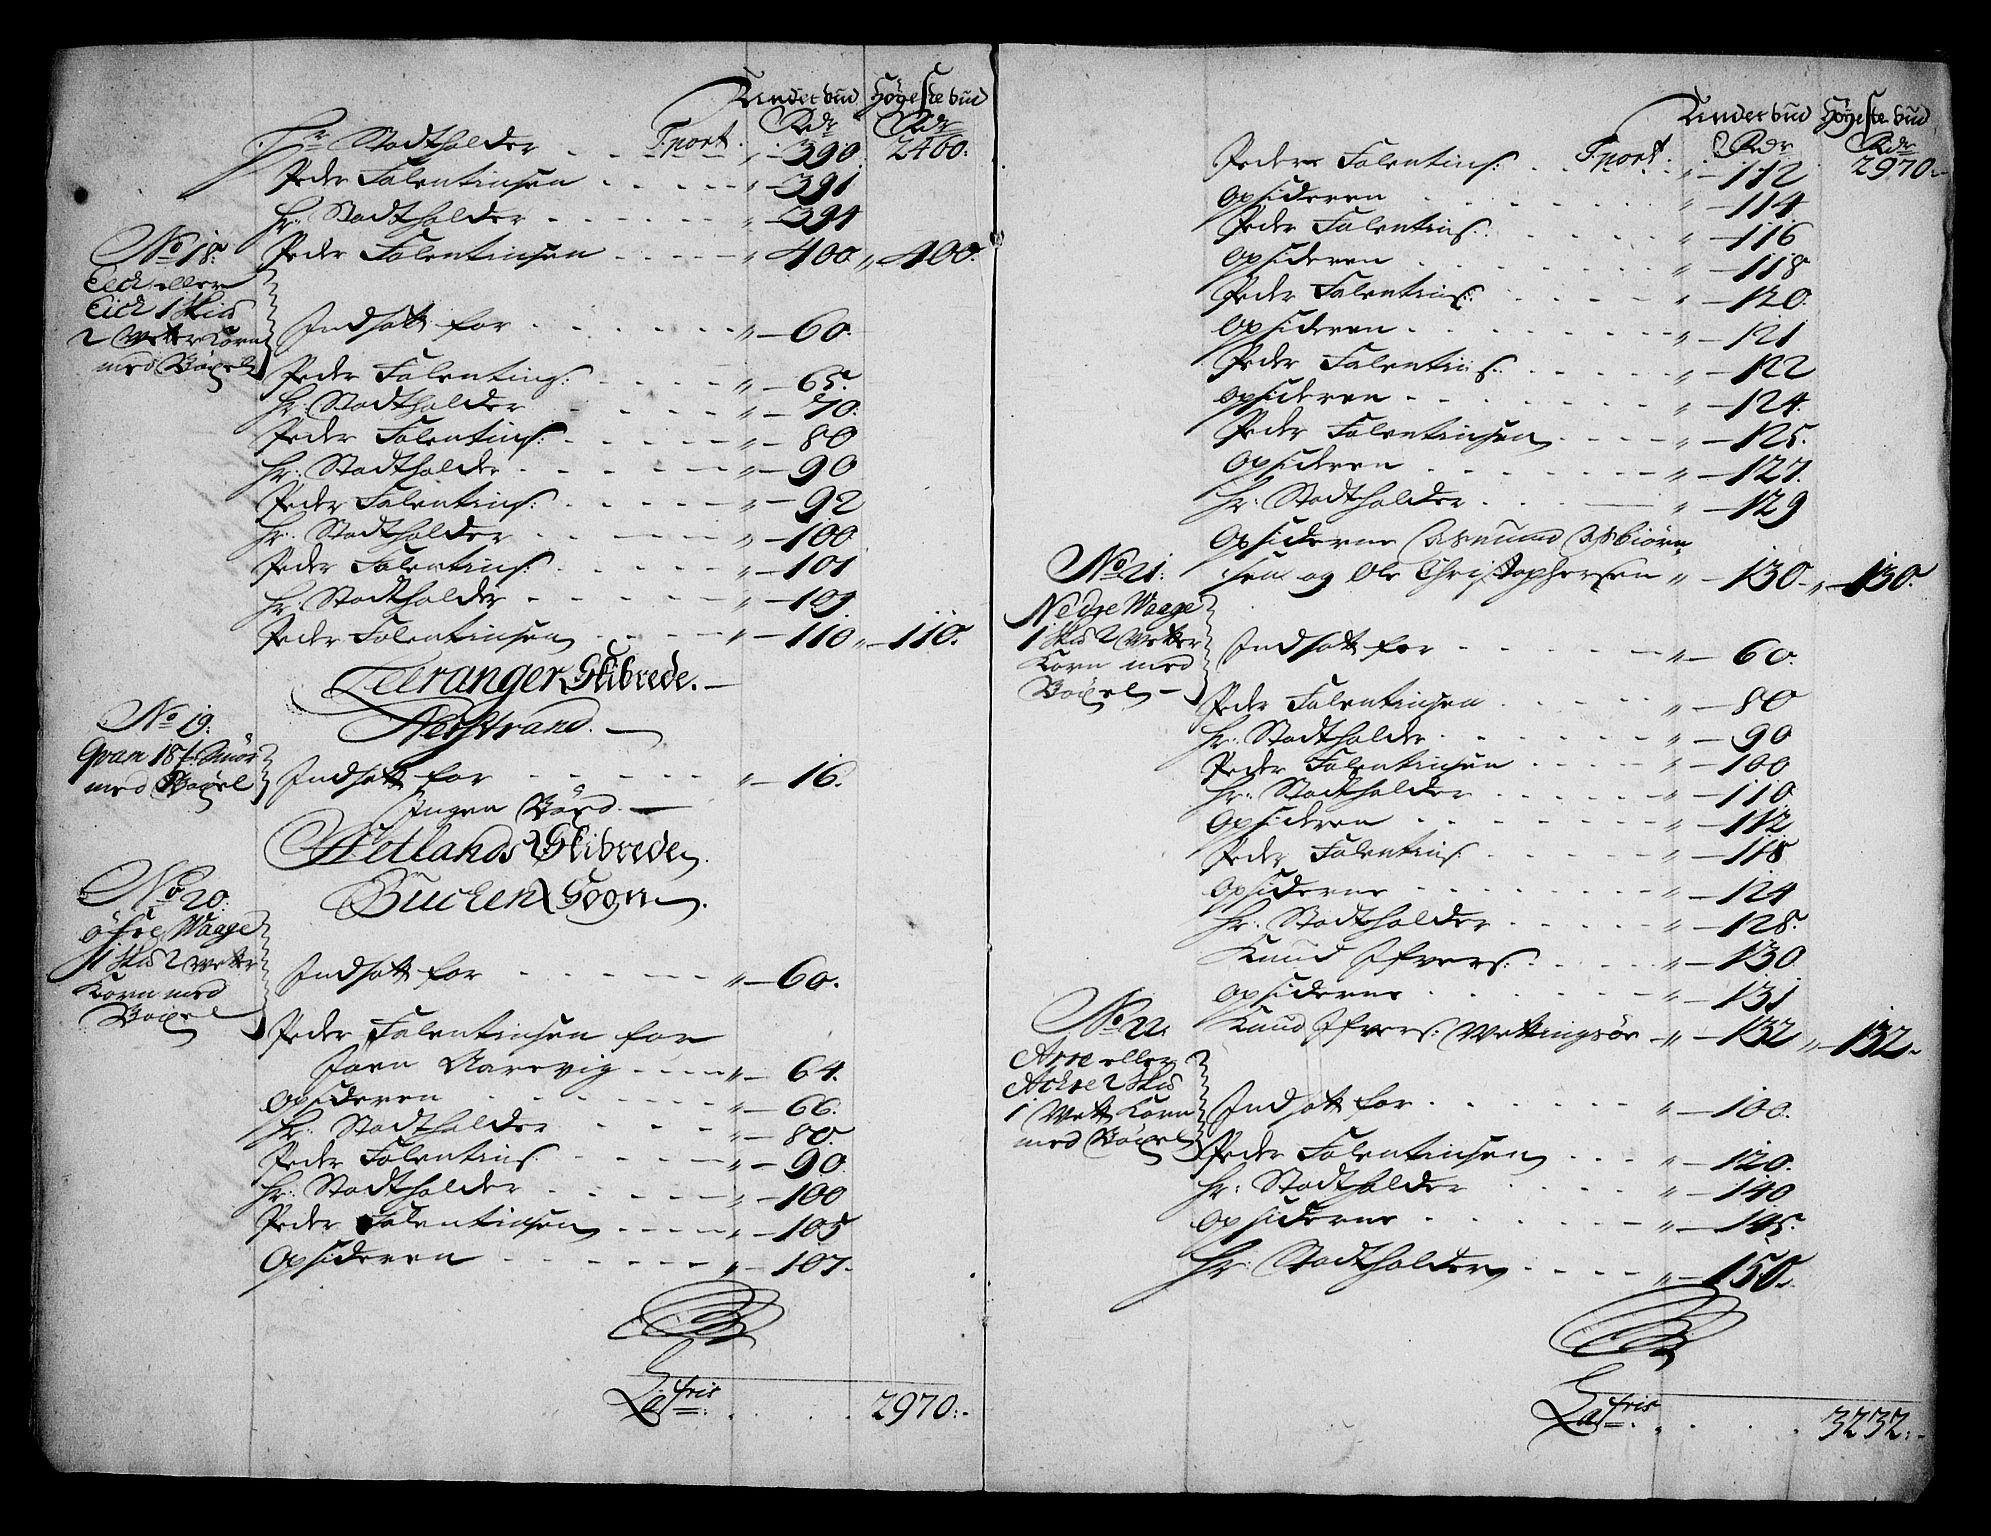 Underbud Høyestebud
Rdr Rdr
Hr Stadtholder . . Tport . . 390 2460:
Peder Falentinsen . . . . . „ — 391
Hr: Stadtholder . . . . . . „ — 394
Peder Falentinsen . . . . „ — 400. „ — 400.
No 18.
Eech eller
Eich 1 Skis
2 Vetter Korn
med Bøxel
Indsatt for . . . . . . „ — 60.
Peder Falentins: . . . . „ — 65.
Hr: Stadtholder . . . . . „ — 70.
Peder Falentins: . . . . . „ — 80
Hr: Stadtholder . . . . . „ — 90
Peder Falentins: . . . . . „ — 92
Hr: Stadtholder . . . . . „ — 100
Peder Falentins: . . . . . „ — 101
Hr: Stadtholder . . . . . . „ — 109
Peder Falentinsen . . . . „ — 110 „ — 110.
Leeranger Skibrede. —
Nerstrand. —
No 19.
Qvam 18 Smør
med Bøxel
Indsatt for . . . . . . „ — 16.
Ingen Bød. —
Hetlands Skibrede.
Bucken Sogn.
No 20.
Øfre Waage
1 Skis 2 Vetter
Korn med
Bøxel
Indsatt for . . . . . . „ — 60.
Peder Falentinsen for
Joen Aarevig . . . . „ — 64.
Opsideren . . . . . . . „ — 66.
Hr: Stadtholder . . . . „ — 80.
Peder Falentins: . . . . „ — 90.
Hr: Stadtholder . . . . . „ — 100
Peder Falentinsen . . . . „ — 105
Opsideren . . . . . . „ — 107.
Lafris . . . . 2970:-
Underbud Høyestebud
Rdr Rdr
Peder Falentins: . . Tport . . „ — 112 2970:-
Opsideren . . . . . . . „ — 114
Peder Falentins: . . . . . „ — 116
Opsideren . . . . . . . „ — 118
Peder Falentins: . . . . . „ — 120.
Opsideren . . . . . . . „ — 121
Peder Falentins: . . . . . „ — 122
Opsideren . . . . . . . „ — 124.
Peder Falentinsen . . . . „ — 125.
Opsideren . . . . . . . „ — 127.
Hr: Stadtholder . . . „ — 129
Opsiderne Asmund Asbiørn-
sen og Ole Christophersen „ — 130 - „ — 130.
No 21.
Nedre Waage
1 Skis 2 Vetter
Korn med
Bøxel —
Indsatt for . . . . . . „ — 60.
Peder Falentinsen . . . . . „ — 80
Hr: Stadtholder . . . . . . „ — 90
Peder Falentinsen . . . . „ — 100
Hr: Stadtholder . . . . . „ — 110
Opsideren . . . . . . . „ — 112
Peder Falentins: . . . . . „ — 118
Opsiderne . . . . . . . „ — 124
Hr: Stadtholder . . . . . „ — 128.
Knud Ifvers: . . . . . „ — 130
Opsiderne . . . . . . . „ — 131
Knud Ifvers: Vettingsøe „ — 132 „ — 132.
No 22.
Arre eller
Ackre 2 Skis
1 Vett Korn
med Bøxel
Indsatt for . . . . . . „ — 100.
Peder Falentinsen . . . „ — 120.
Hr: Stadtholder . . . . „ — 140
Opsiderne . . . . . . „ — 145.
Hr: Stadtholder . . . . „ — 150.
Lafris . . . . 3232:-